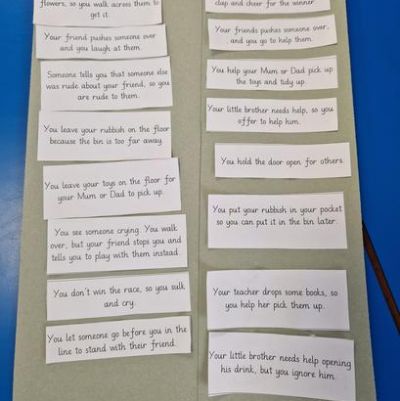 flowers, so you walk across them to
get it.
Your friend pushes someone over
and you laugh at them.
Someone tells you that someone else
was rude about your friend, so you
are rude to them.
You leave your rubbish on the floor
because the bin is too far away.
You leave your toys on the floor for
your Mum or Dad to pick up.
You see someone crying. You walk
over, but your friend stops you and
tells you to play with them instead.
You don't win the race, so you sulk
and cry.
You let someone go before you in the
line to stand with their friend.
clap and cheer for the winner
Your friends pushes someone over,
and you go to help them.
You help your Mum or Dad pick up
the toys and tidy up.
Your little brother needs help, so you
offer to help him.
You hold the door open for others.
You put your rubbish in your pocket
so you can put it in the bin later.
Your teacher drops some books, so
you help her pick them up.
Your little brother needs help opening
his drink, but you ignore him.